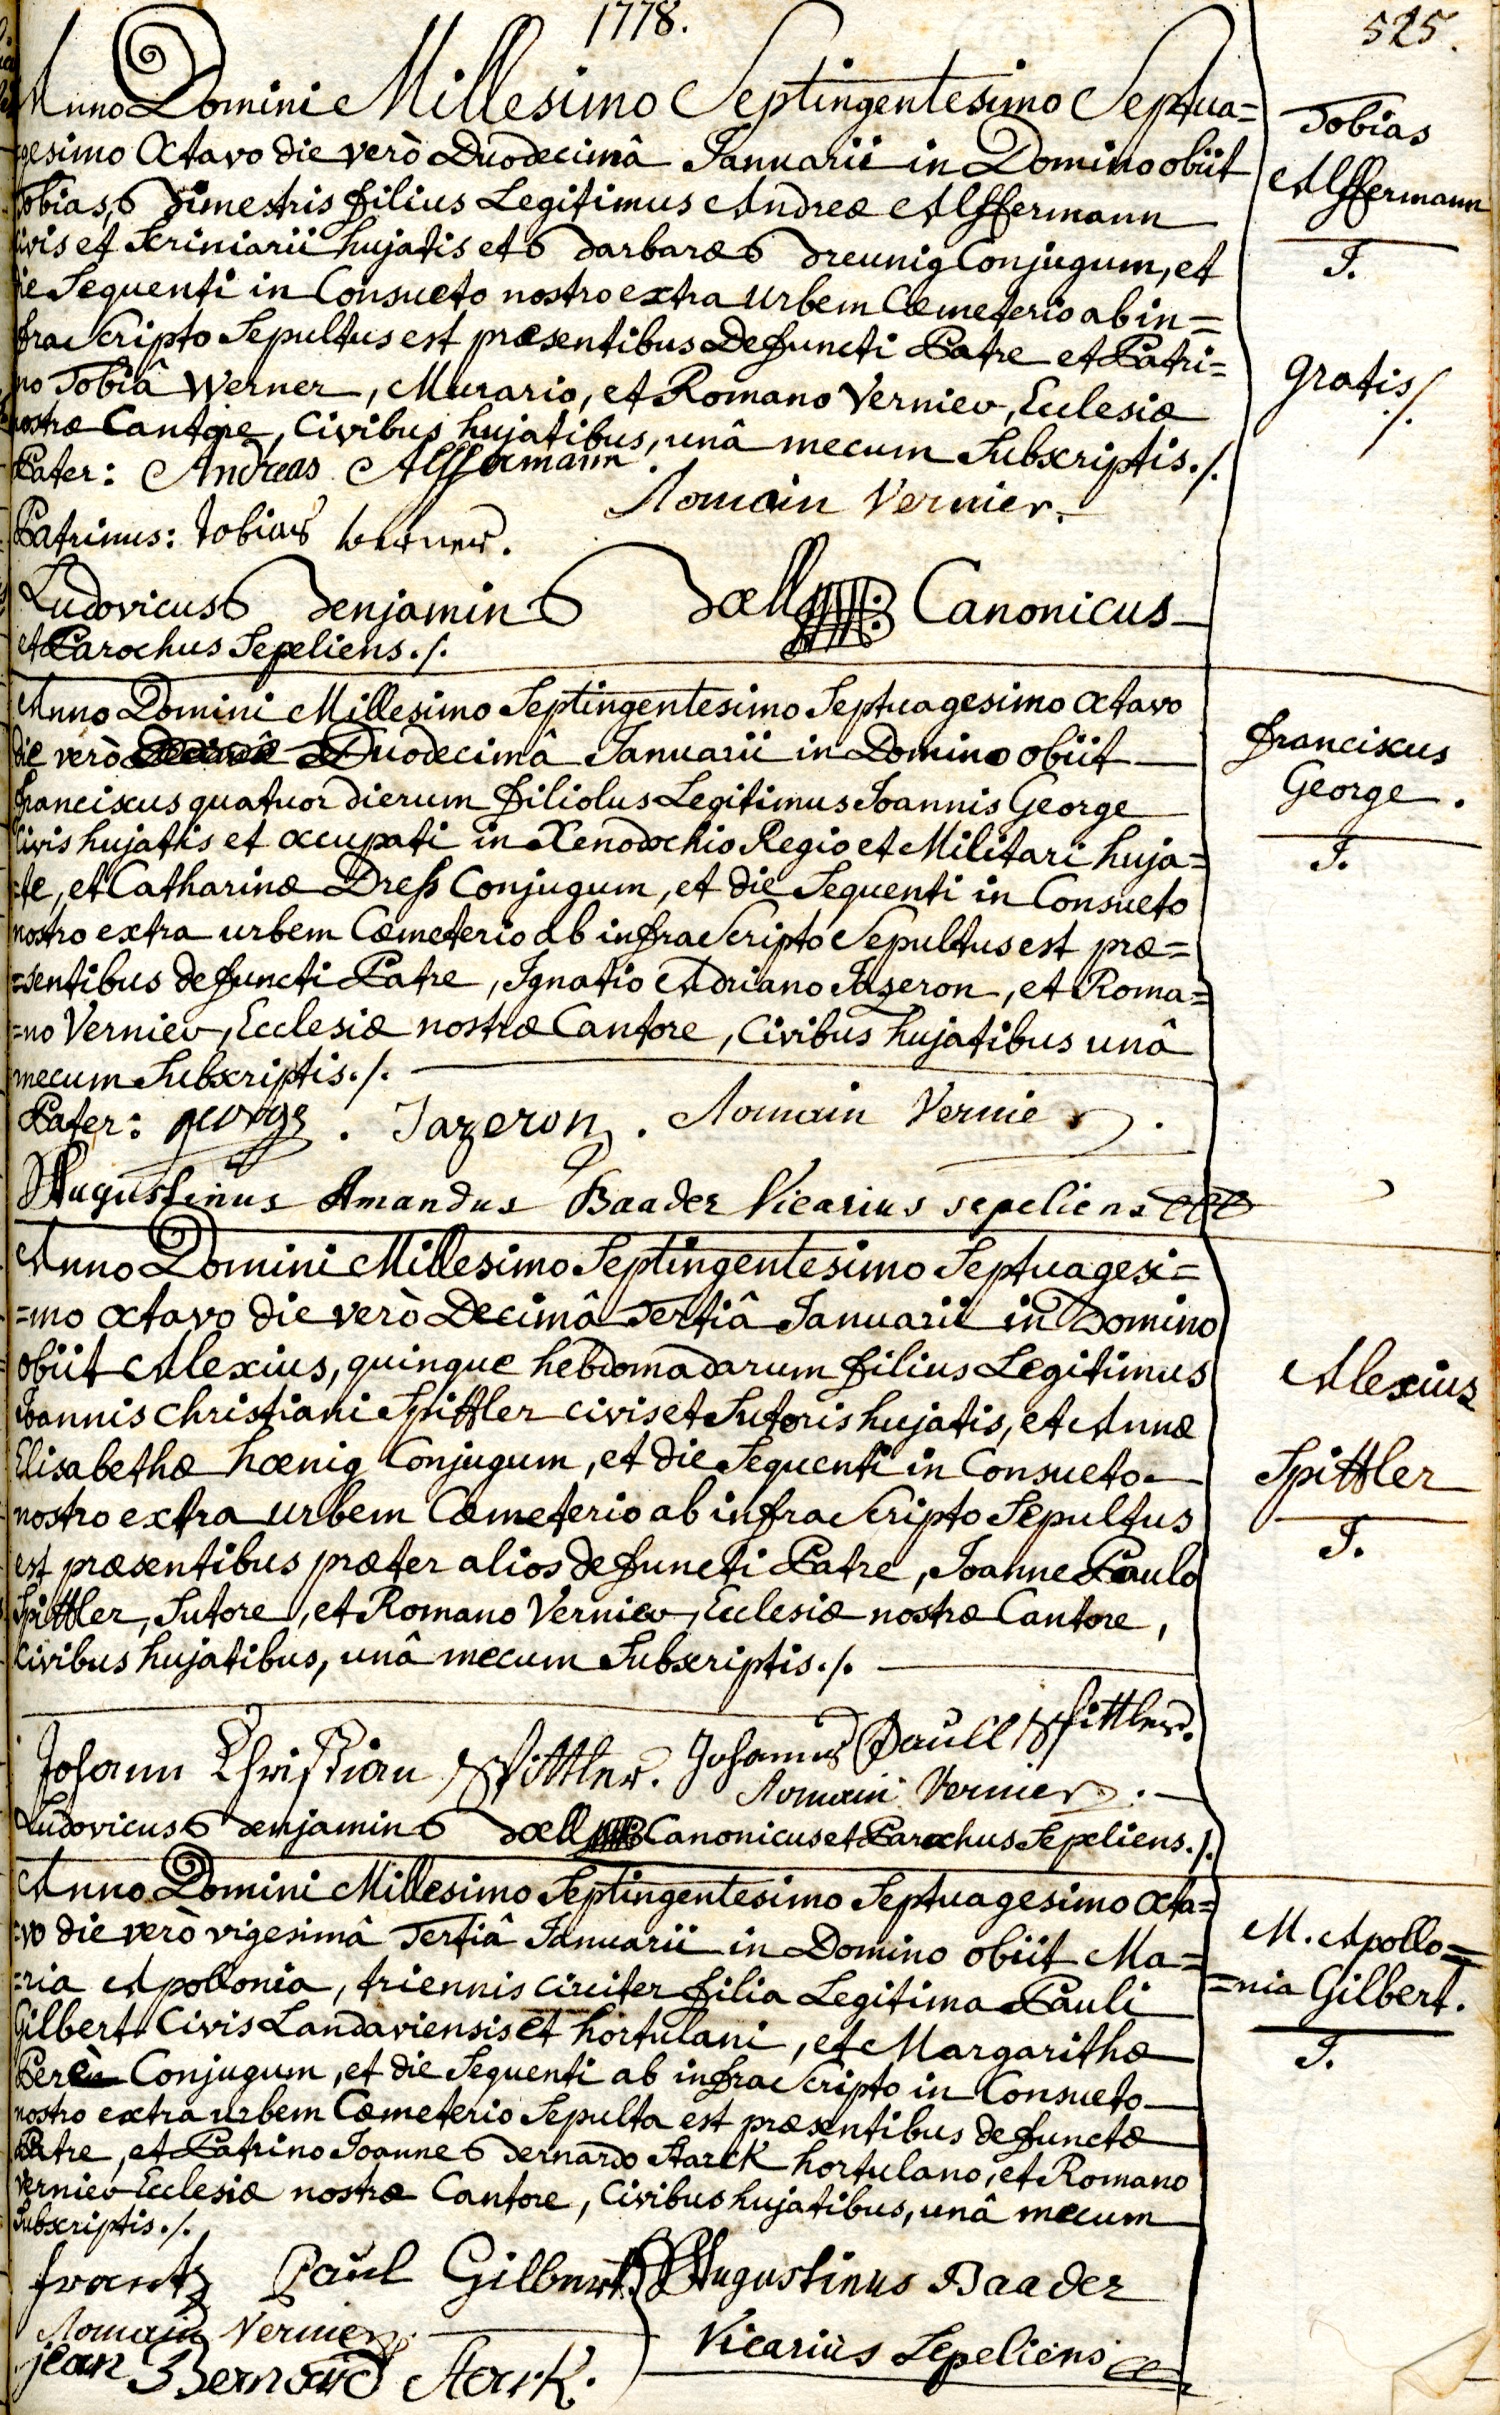 1778.
525.
Anno Domini Millesimo Septingentesimo Septua=
gesimo Octavo die verò Duodecimâ Januarii in Domino obiit
Tobias, Bimestris filius Legitimus Andreæ Alffermann
Civis et Scriniarii hujatis et Barbaræ Breunig Conjugum, et
die Sequenti in Consueto nostro extra Urbem Cœmeterio ab in=
fra Scripto Sepultus est præsentibus Defuncti Patre et Patri=
no Tobiâ Werner, Murario, et Romano Vernier, Ecclesiæ
nostræ Cantore, Civibus hujatibus, unâ mecum Subscriptis./.
Pater: Andreas Alffermann
Romain Vernier.
Patrinus: Tobias Werner.
Ludovicus Benjamin Doell Canonicus
et Parochus Sepeliens./.
Tobias
Alffermann
J.
Gratis/.
Anno Domini Millesimo Septingentesimo Septuagesimo Octavo
die verò Duodecimâ Januarii in Domino obiit
Franciscus quatuor dierum filiolus Legitimus Joannis George
Civis hujatis et occupati in Xenodochio Regio et Militari huja=
=te, et Catharinæ Dress Conjugum, et die Sequenti in Consueto
nostro extra urbem Cœmeterio ab infra Scripto Sepultus est præ=
=sentibus defuncti Patre, Ignatio Adriano Jazeron, et Roma=
=no Vernier, Ecclesiæ nostræ Cantore, Civibus hujatibus unâ
mecum Subscriptis./.
Pater: george. Jazeron. Romain Vernier.
Augustinus Amandus Baader Vicarius sepeliens
Franciscus
George.
J.
Anno Domini Millesimo Septingentesimo Septuagesi=
=mo Octavo die verò Decimâ Tertiâ Januarii in Domino
obiit Alexius, quinque hebdomadarum filius Legitimus
Joannis Christiani Spittler civis et Sutoris hujatis, et Annæ
Elisabethæ hœnig Conjugum, et die Sequenti in Consueto
nostro extra urbem Cœmeterio ab infra Scripto Sepultus
est præsentibus præter alios defuncti Patre, Joanne Paulo
Spittler, Sutore, et Romano Vernier, Ecclesiæ nostræ Cantore,
Civibus hujatibus, unâ mecum Subscriptis./.
Johann Christian Spittler. Johannes Paull Spittler.
Romain Vernier.
Ludovicus Benjamin Doell Canonicus et Parochus Sepeliens./.
Alexius
Spittler
J.
Anno Domini Millesimo Septingentesimo Septuagesimo Octa=
=vo die verò vigesimâ Tertiâ Januarii in Domino obiit Ma=
=ria Apollonia, triennis circiter filia Legitima Pauli
Gilbert Civis Landaviensis et hortulani, et Margarithæ
Conjugum, et die Sequenti ab infra Scripto in Consueto
nostro extra urbem Cœmeterio Sepulta est præsentibus defunctæ
Patre, et Patrino Joanne Bernardo Starck hortulano, et Romano
Vernier Ecclesiæ nostræ Cantore, Civibus hujatibus, unâ mecum
Subscriptis./.
frantz Paul Gilbert. Augustinus Baader
Romain Vernier.
Vicarius Sepeliens
jean Bernard Stark.
M. Apollo=
=nia Gilbert.
J.